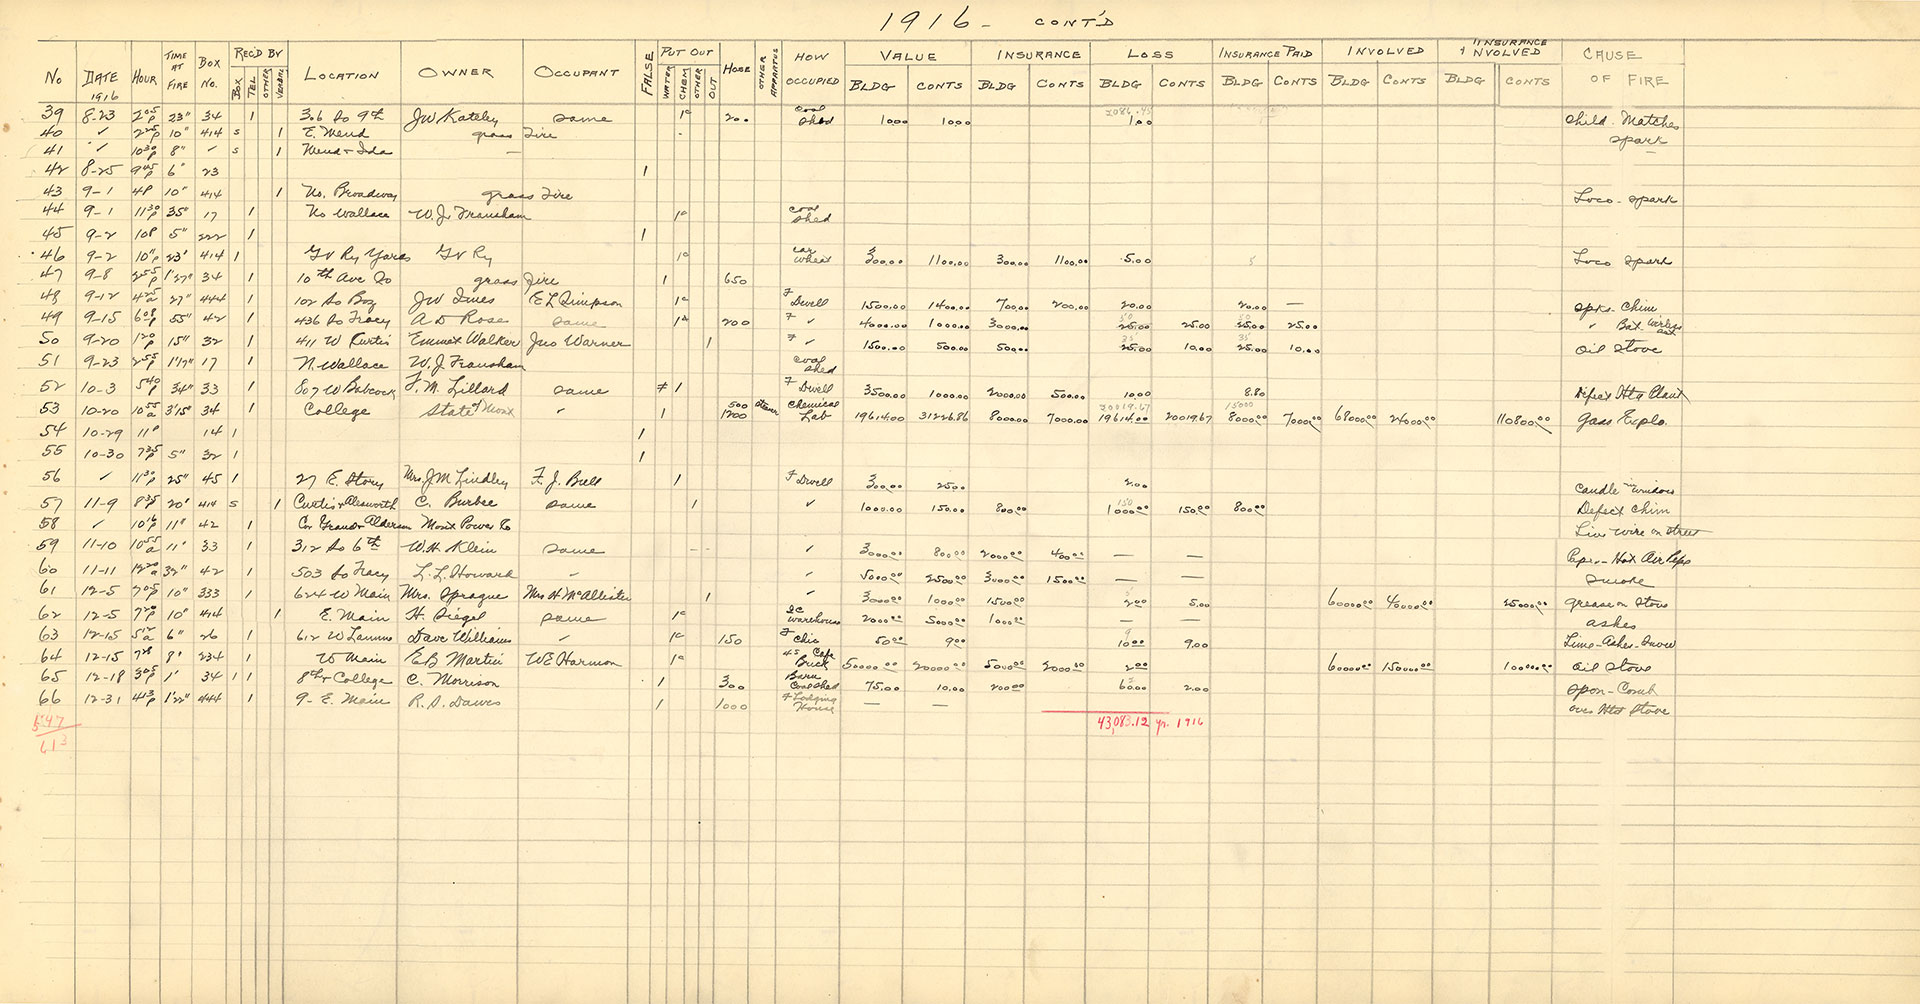 1916 - CONT'D
No DATE 1916 HOUR TIME AT FIRE BOX No. REC'D BY BOX TEL OTHER VERBAL LOCATION OWNER OCCUPANT FALSE PUT OUT WATER CHEM OTHER OUT HOSE OTHER APPARATUS HOW OCCUPIED VALUE BLDG CONTS INSURANCE BLDG CONTS LOSS BLDG CONTS INSURANCE PAID BLDG CONTS INVOLVED BLDG CONTS INSURANCE INVOLVED BLDG CONTS CAUSE OF FIRE
39 8-23 2 05 P 23" 34 1 306 So 9th JW Kateley same 1c 200 coal shed 10.00 10.00 1.00 child - Matches
40 " 2 25 P 10" 414 s 1 E. Mend grass fire - spark
41 " 10 30 P 8" " s 1 Mend + Ida —
42 8-25 9 05 P 6" 23 1
43 9-1 4P 10" 414 1 No. Broadway grass fire Loco - spark
44 9-1 11 30 P 35" 17 1 No Wallace W. J. Fransham 1c coal shed
45 9-2 10P 5" 222 1 1
46 9-2 23" 414 1 Ry Yards Ry 1c car wheat 300.00 1100.00 300.00 1100.00 5.00 5 Loco spark
47 9-8 2 55 P 1'27" 34 1 10th Ave So grass fire 1 650
48 9-12 4 25 a 27" 444 1 102 So Boz JW Ines E L Simpson 1c F Dwell 1500.00 1400.00 700.00 200.00 20.00 20.00 — spks - Chim
49 9-15 6 08 P 55" 42 1 436 So Tracy A D Rose same 1c 200 F " 4000.00 1000.00 3000.00 25.00 25.00 25.00 25.00 "
50 9-20 1 20 P 15" 32 1 411 W Curtis Emmet Walker Jno Warner 1 F " 1500.00 500.00 500.00 25.00 10.00 25.00 10.00 Oil Stove
51 9-23 2 55 P 1'17" 17 1 N. Wallace W. J. Fransham coal shed
52 10-3 5 40 P 34" 33 1 807 W Babcock F. M. Lillard same 1 F Dwell 3500.00 1000.00 2000.00 500.00 10.00 8.80 Defect Htg Plant
53 10-20 10 55 a 3'15" 34 1 College State of Mont " 1 500 1200 steamer Chemical Lab 19614.00 31226.86 8000.00 7000.00 19614.00 20019.67 8000.00 7000.00 68000.00 24000.00 110800.00 Gass Explo.
54 10-29 11P 14 1 1
55 10-30 7 35 P 5" 32 1 1
56 " 11 30 P 25" 45 1 27 E. Story Mrs. J M Lindley F. J. Bull 1 F Dwell 300.00 25.00 2.00 Candle in window
57 11-9 8 35 P 20" 414 s 1 Curtis + Ellsworth C. Burbee same 1 " 1000.00 150.00 800.00 1000.00 150.00 800.00 Defect Chim
58 " 10 16 P 11" 42 1 Cor Grand + Alderson Mont Power Co Live wire on street
59 11-10 10 55 a 11" 33 1 312 So 6th W. H. Klein same " 3000.00 800.00 2000.00 400.00 — — Hot Air Pipe
60 11-11 12 20 a 32" 42 1 503 So Tracy L. L. Howard " " 5000.00 2500.00 3000.00 1500.00 — — Smoke
61 12-5 7 05 P 10" 333 1 624 W Main Mrs. Sprague Mrs H McAllister 1 " 3000.00 1000.00 1500.00 2.00 5.00 60000.00 40000.00 25000.00 grease on Stove
62 12-5 7 20 P 10" 414 1 E. Main H. Siegel same 1c warehouse 2000.00 5000.00 1000.00 — — ashes
63 12-15 5 12 a 6" 26 1 612 W Lamme Dave Williams " 1c 150 F Chic 50.00 9.00 10.00 9.00 Lime - Ashes - Snow
64 12-15 7 28 P 8" 234 1 W Main E B Martin W E Harmon 1c Cafe Brick 50000.00 20000.00 5000.00 2000.00 2.00 60000.00 15000.00 10000.00 Oil Stove
65 12-18 3 05 P 1' 34 1 1 8th + College C. Morrison 1 300 Barn Coal Shed 75.00 10.00 200.00 60.00 2.00 Spon - Comb
66 12-31 4 13 P 1'22" 444 1 9- E. Main R. S. Dawes 1 1000 F Lodging House — — over Htd Stove
547
613
43,083.12 yr. 1916